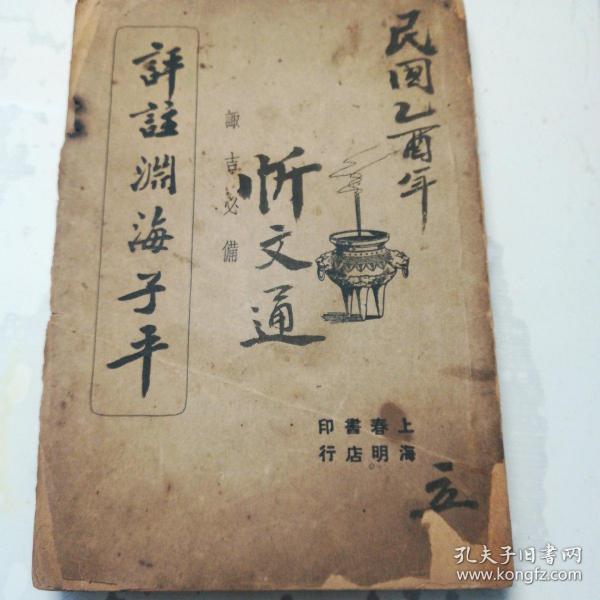 民国乙酉年
諏吉必備
忻文通
評註淵海子平
上海春明書店印行
立
孔夫子旧书网
www.kongfz.com